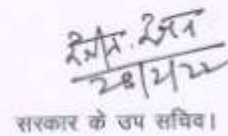 28/2/22
सरकार के उप सचिव।